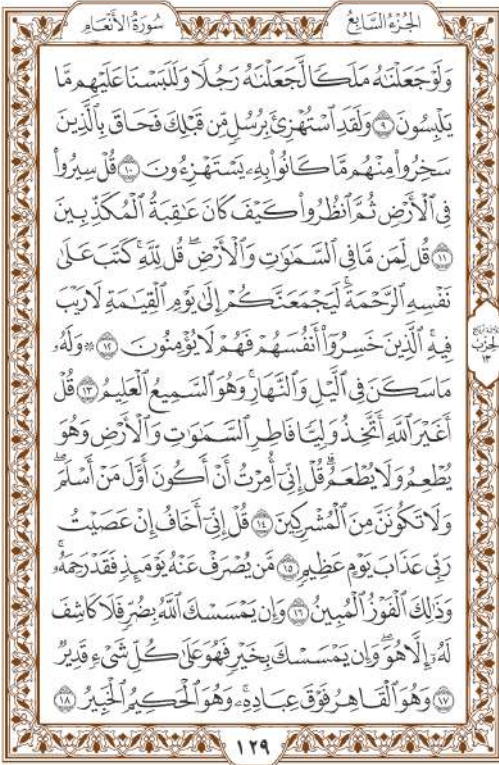 الجُزْءُ السَّابِعُ
سُورَةُ الأَنْعَامِ
وَلَوْ جَعَلْنَٰهُ مَلَكًا لَّجَعَلْنَٰهُ رَجُلًا وَلَلَبَسْنَا عَلَيْهِم مَّا
يَلْبِسُونَ ٩ وَلَقَدِ ٱسْتُهْزِئَ بِرُسُلٍ مِّن قَبْلِكَ فَحَاقَ بِٱلَّذِينَ
سَخِرُوا۟ مِنْهُم مَّا كَانُوا۟ بِهِۦ يَسْتَهْزِءُونَ ١٠ قُلْ سِيرُوا۟
فِى ٱلْأَرْضِ ثُمَّ ٱنظُرُوا۟ كَيْفَ كَانَ عَٰقِبَةُ ٱلْمُكَذِّبِينَ
١١ قُل لِّمَن مَّا فِى ٱلسَّمَٰوَٰتِ وَٱلْأَرْضِ ۖ قُل لِّلَّهِ ۚ كَتَبَ عَلَىٰ
نَفْسِهِ ٱلرَّحْمَةَ ۚ لَيَجْمَعَنَّكُمْ إِلَىٰ يَوْمِ ٱلْقِيَٰمَةِ لَا رَيْبَ
فِيهِ ۚ ٱلَّذِينَ خَسِرُوٓا۟ أَنفُسَهُمْ فَهُمْ لَا يُؤْمِنُونَ ١٢ ۞ وَلَهُۥ
مَا سَكَنَ فِى ٱلَّيْلِ وَٱلنَّهَارِ ۚ وَهُوَ ٱلسَّمِيعُ ٱلْعَلِيمُ ١٣ قُلْ
أَغَيْرَ ٱللَّهِ أَتَّخِذُ وَلِيًّا فَاطِرِ ٱلسَّمَٰوَٰتِ وَٱلْأَرْضِ وَهُوَ
يُطْعِمُ وَلَا يُطْعَمُ ۗ قُلْ إِنِّىٓ أُمِرْتُ أَنْ أَكُونَ أَوَّلَ مَنْ أَسْلَمَ ۖ
وَلَا تَكُونَنَّ مِنَ ٱلْمُشْرِكِينَ ١٤ قُلْ إِنِّىٓ أَخَافُ إِنْ عَصَيْتُ
رَبِّى عَذَابَ يَوْمٍ عَظِيمٍ ١٥ مَّن يُصْرَفْ عَنْهُ يَوْمَئِذٍ فَقَدْ رَحِمَهُۥ ۚ
وَذَٰلِكَ ٱلْفَوْزُ ٱلْمُبِينُ ١٦ وَإِن يَمْسَسْكَ ٱللَّهُ بِضُرٍّ فَلَا كَاشِفَ
لَهُۥٓ إِلَّا هُوَ ۖ وَإِن يَمْسَسْكَ بِخَيْرٍ فَهُوَ عَلَىٰ كُلِّ شَىْءٍ قَدِيرٌ
١٧ وَهُوَ ٱلْقَاهِرُ فَوْقَ عِبَادِهِۦ ۚ وَهُوَ ٱلْحَكِيمُ ٱلْخَبِيرُ ١٨
الحِزْبِ
١٣
١٢٩